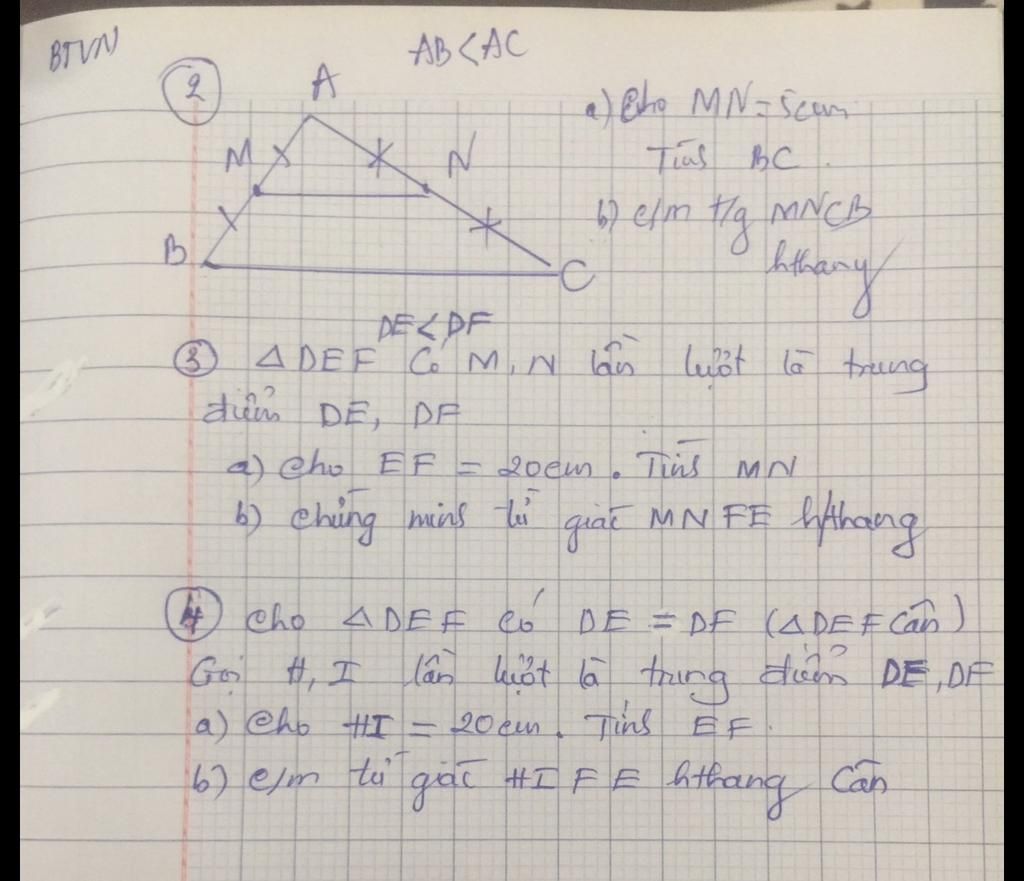 BTVN
AB < AC
2
A
M
N
B
C
a) Cho MN = 5cm
Tính BC.
b) c/m t/g MNCB
hthang
DE < DF
3 ΔDEF có M, N lần lượt là trung
điểm DE, DF
a) Cho EF = 20cm. Tính MN
b) Chứng minh tứ giác MNFE h/thang
4 Cho ΔDEF có DE = DF (ΔDEF cân)
Gọi H, I lần lượt là trung điểm DE, DF
a) Cho HI = 20cm. Tính EF.
b) c/m tứ giác HIFE hthang cân